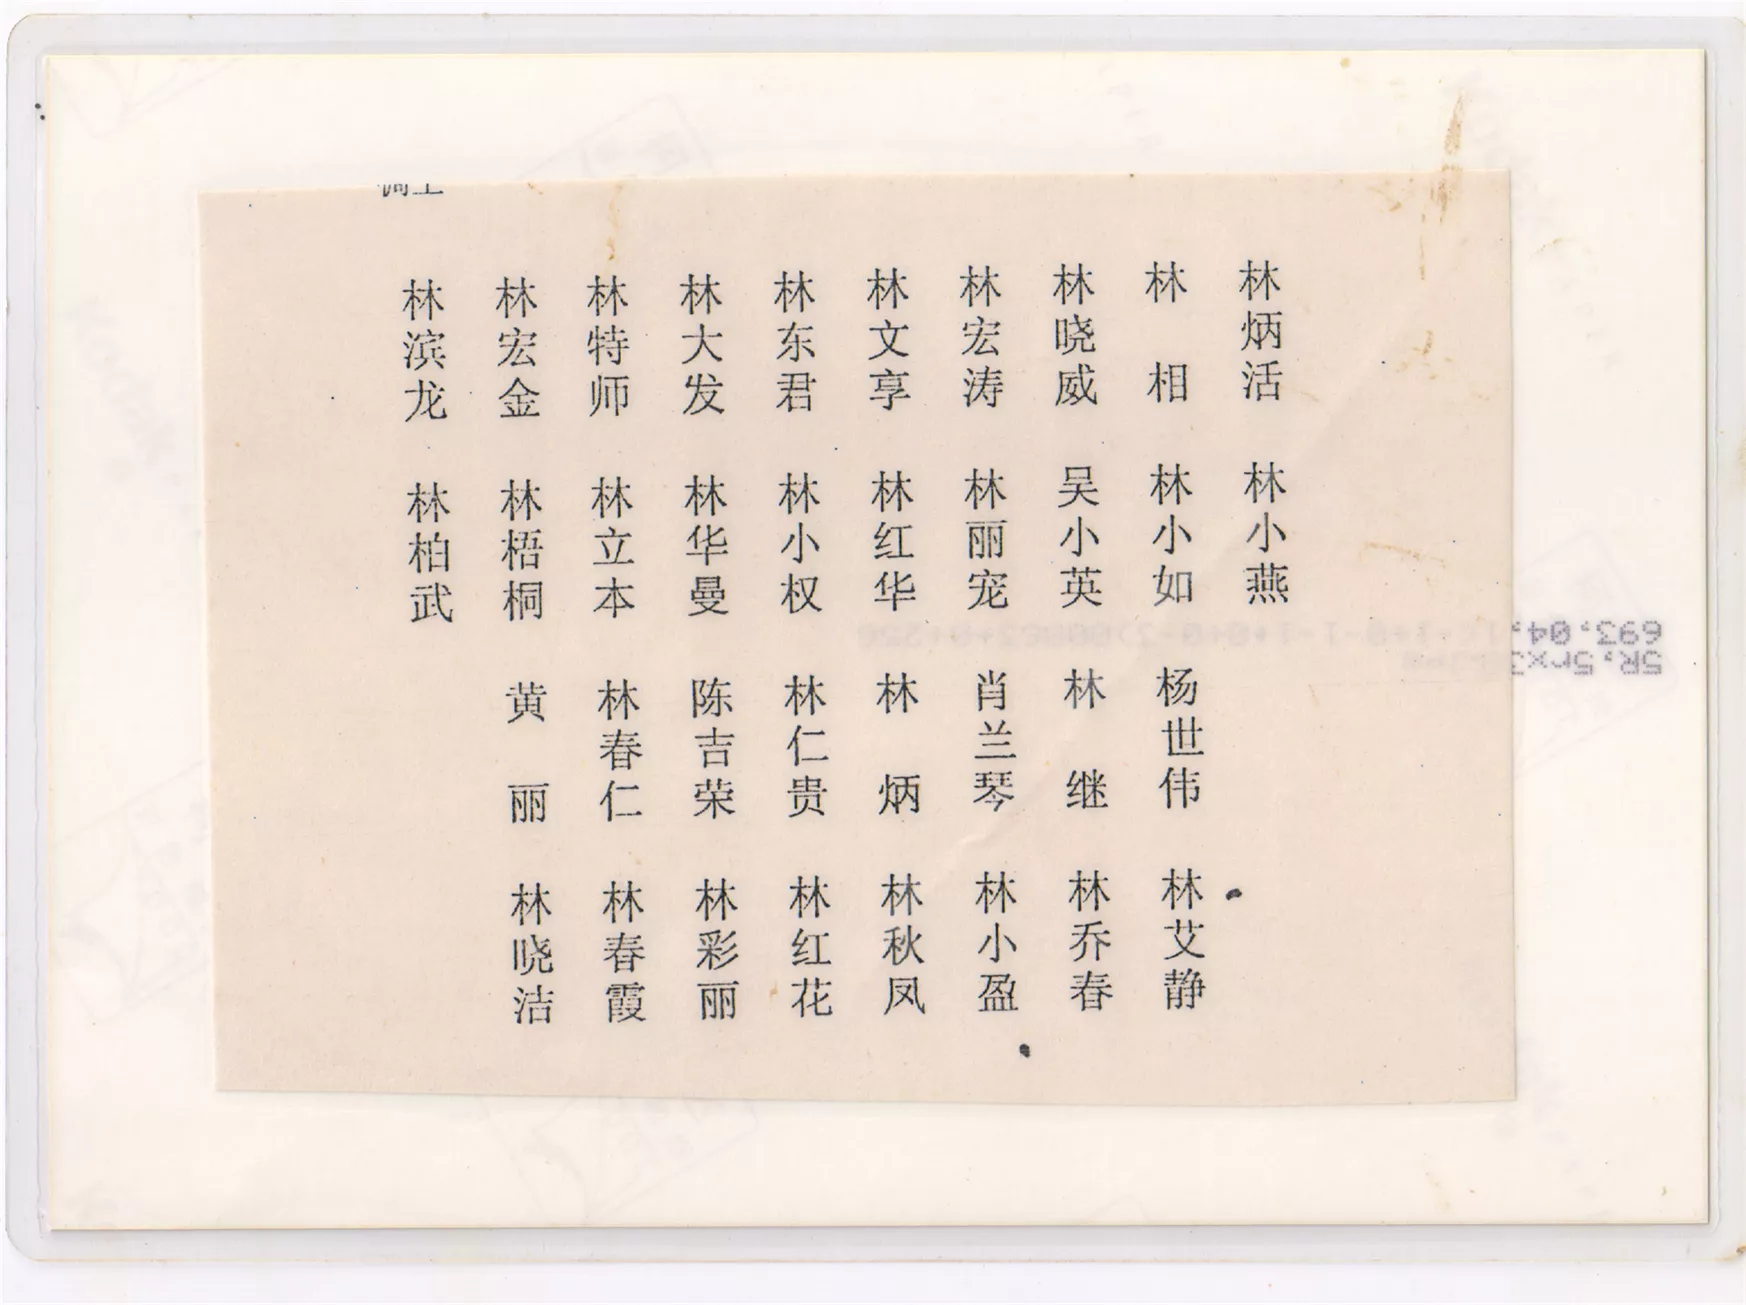 林炳活 林小燕
林 相 林小如 杨世伟 林艾静
林晓威 吴小英 林 继 林乔春
林宏涛 林丽宠 肖兰琴 林小盈
林文享 林红华 林 炳 林秋凤
林东君 林小权 林仁贵 林红花
林大发 林华曼 陈吉荣 林彩丽
林特师 林立本 林春仁 林春霞
林宏金 林梧桐 黄 丽 林晓洁
林滨龙 林柏武